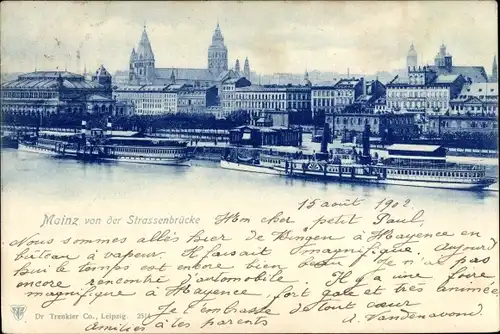 Mainz von der Strassenbrücke
15 août 1902.
Mon cher petit Paul,
Nous sommes allés hier de Bingen à Mayence en
bateau à vapeur. Il faisait magnifique. Aujourd
hui le temps est encore bien beau. Je n'ai pas
encore rencontré d'automobile. Il y a une foire
magnifique à Mayence, fort gale et très animée
Je t'embrasse de tout cœur
Amitiés à tes parents
A. Vandenavond
Dr Trenkler Co., Leipzig.